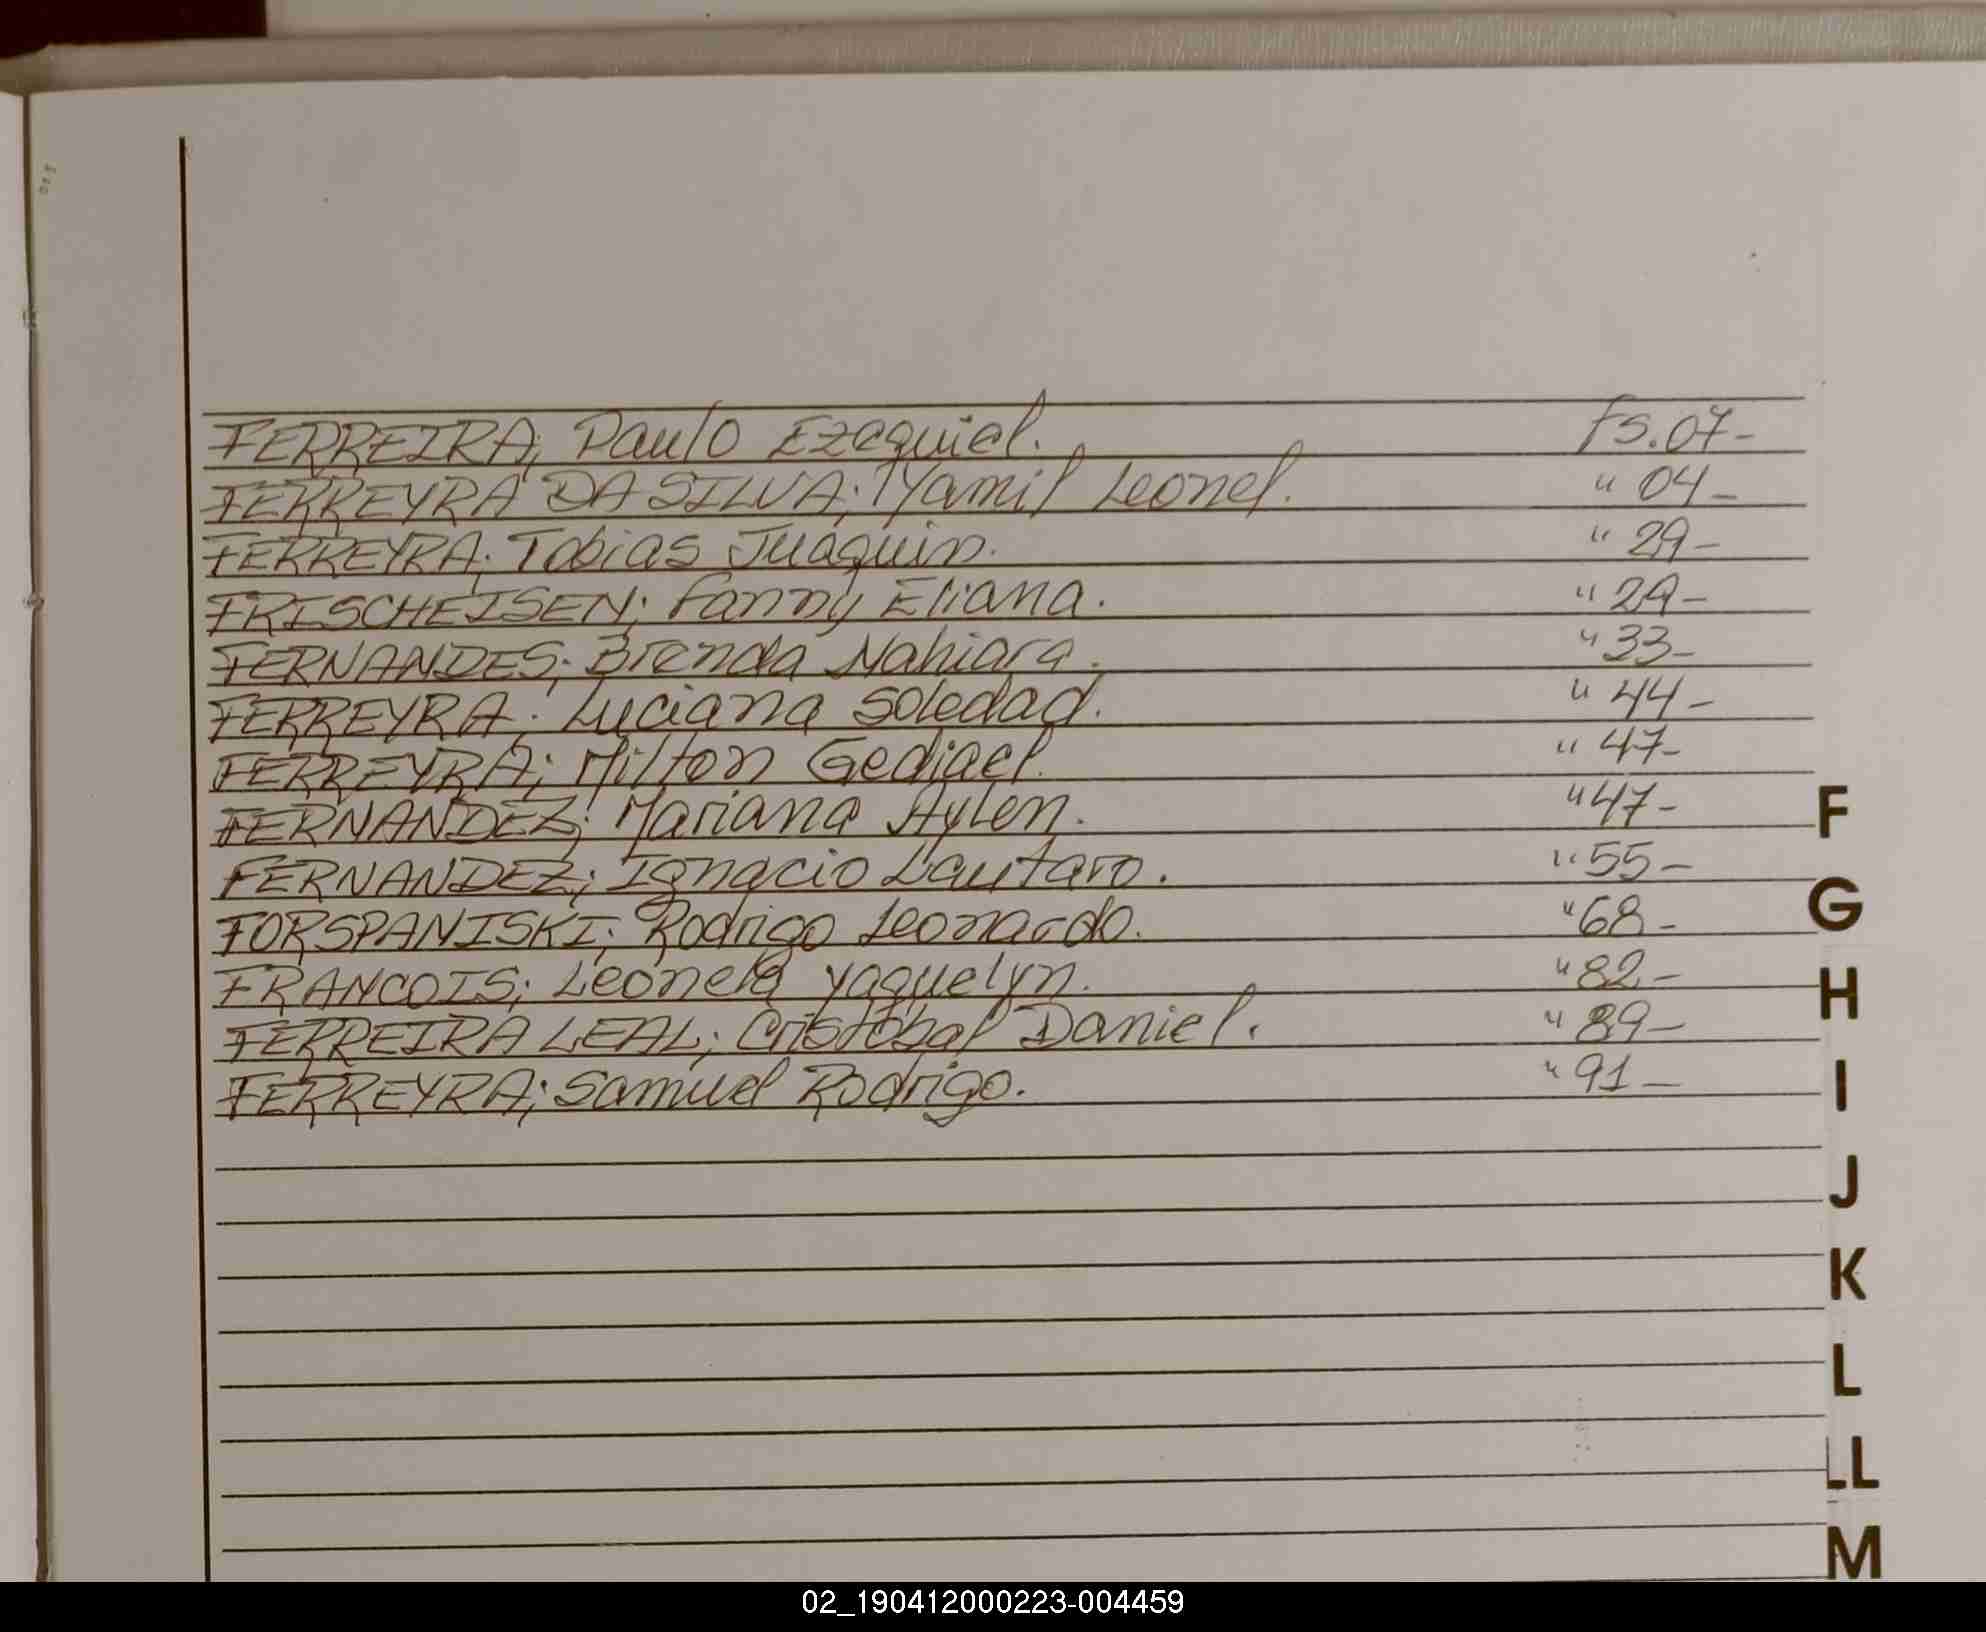 FERREIRA; Paulo Ezequiel. Fs. 07-
FERREYRA DA SILVA; Yamil Leonel. " 04-
FERREYRA; Tobias Juaquin. " 29-
FRISCHEISEN; Fanny Eliana. " 29-
FERNANDES; Brenda Nahiara. " 33-
FERREYRA. Luciana Soledad. " 44-
FERREYRA; Milton Gediael. " 47-
FERNANDEZ; Mariana Aylen. " 47-
FERNANDEZ; Ignacio Lautaro. " 55-
FORSPANISKI; Rodrigo Leonardo. " 68-
FRANCOIS; Leonela Yaquelyn. " 82-
FERREIRA LEAL; Cristobal Daniel. " 89-
FERREYRA; Samuel Rodrigo. " 91-
F
G
H
I
J
K
L
LL
M
02_190412000223-004459